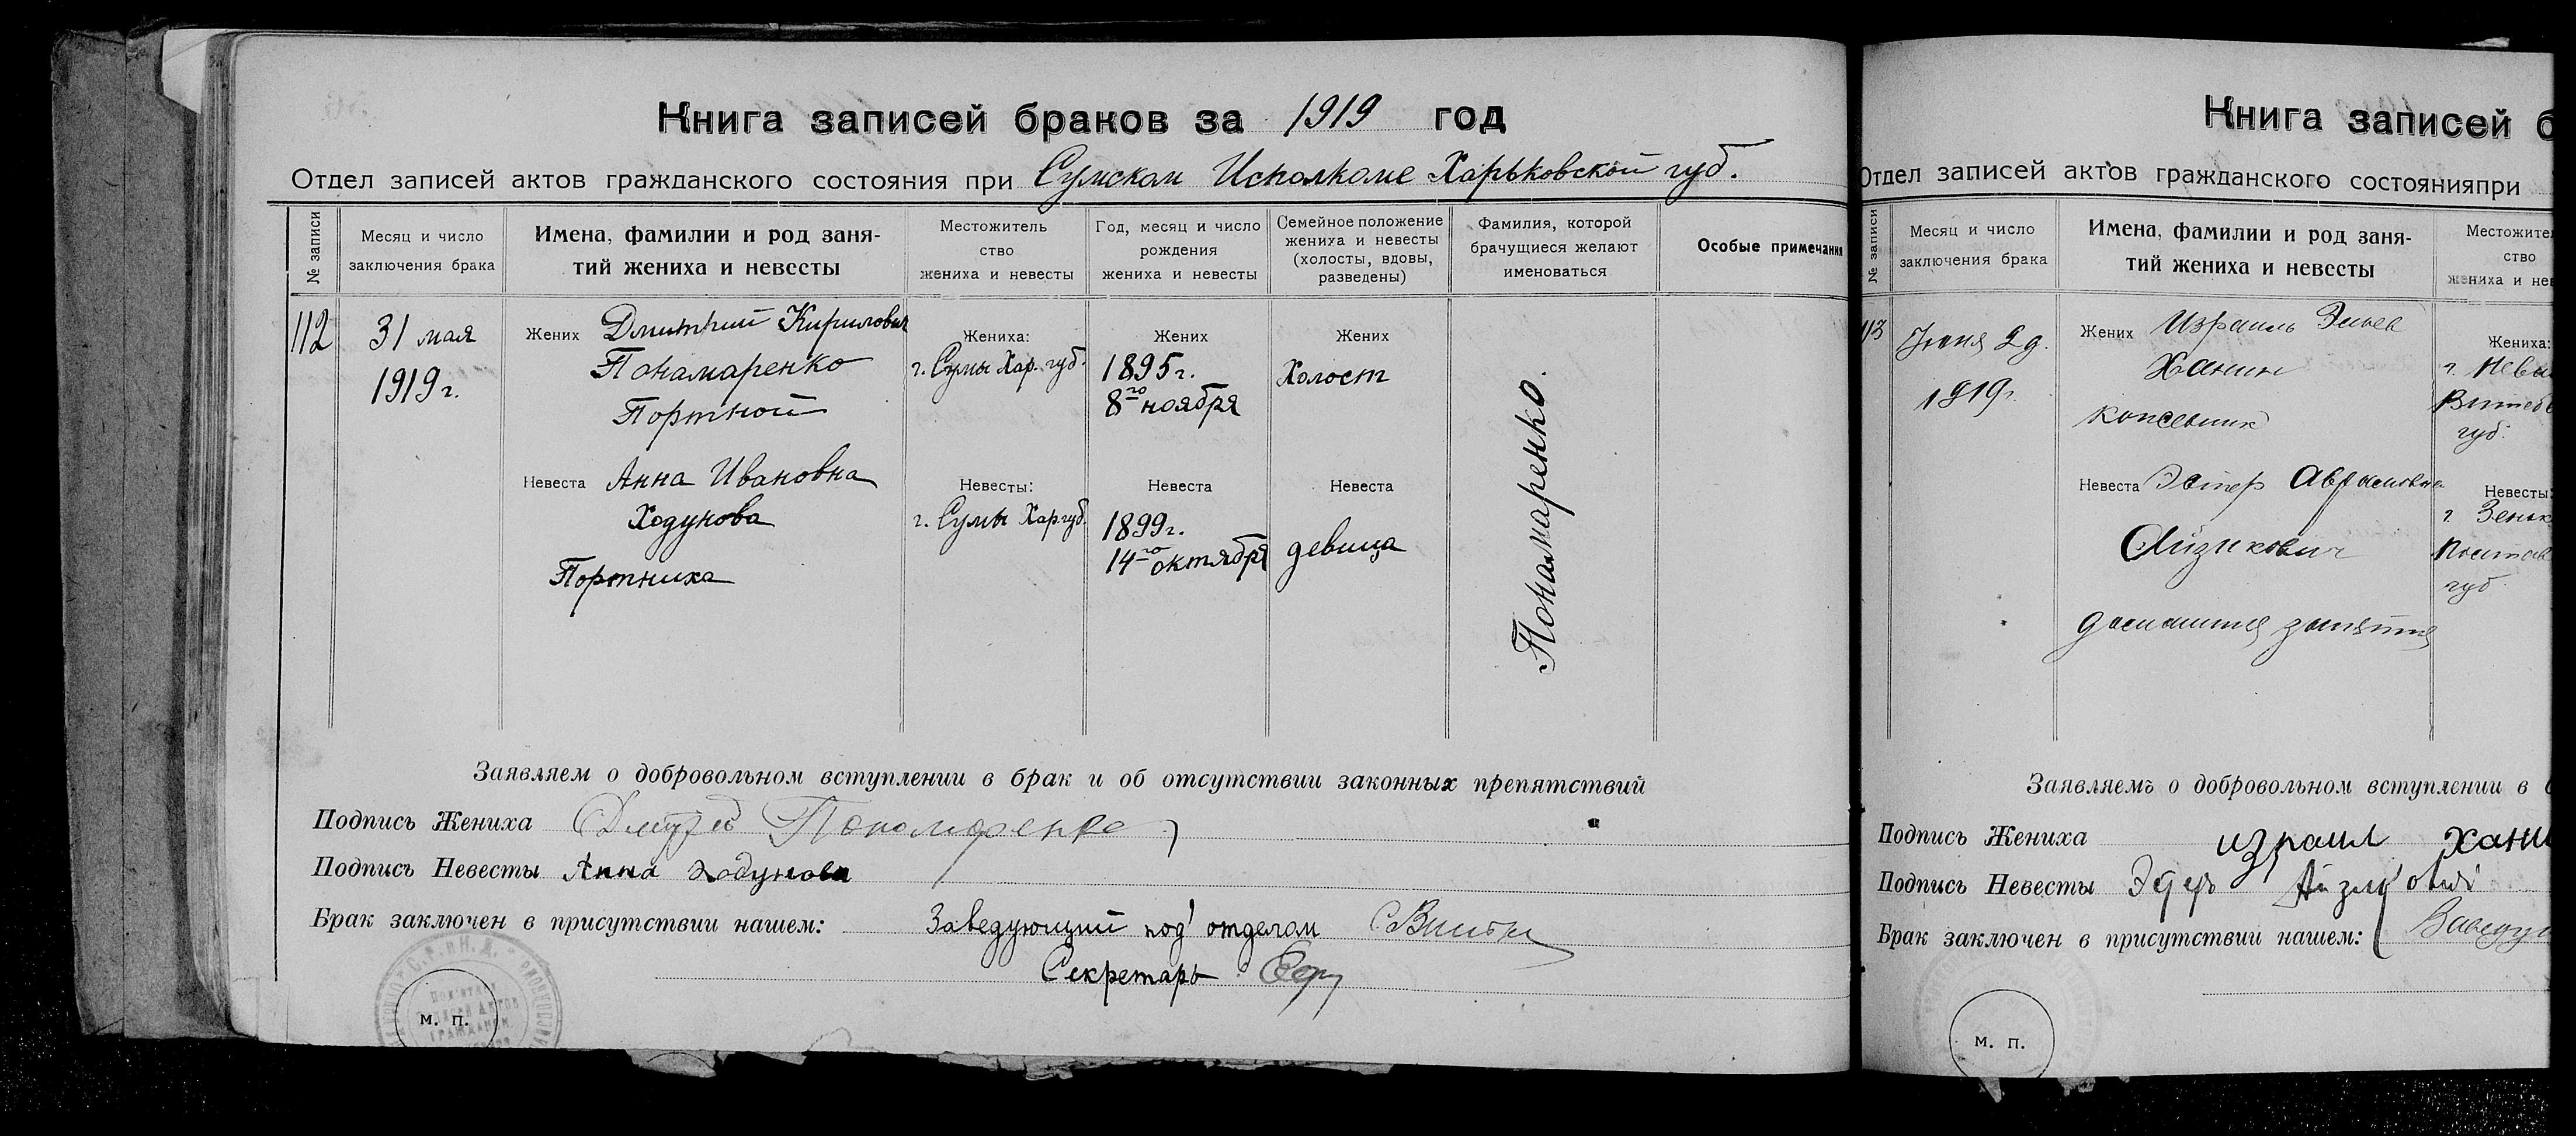 Книга записей браков за 1919 год
Отдел записей актов гражданского состояния при Сумском Исполкоме Харьковской губ.
№ записи
Месяц и число
заключения брака
Имена, фамилии и род заня-
тий жениха и невесты
Местожитель
ство
жениха и невесты
Год, месяц и число
рождения
жениха и невесты
Семейное положение
жениха и невесты
(холосты, вдовы,
разведены)
Фамилия, которой
брачущиеся желают
именоваться
Особые примечания
112
31 мая
1919 г.
Жених Дмитрий Кирилович
Понамаренко
Портной
Невеста Анна Ивановна
Ходунова
Портниха
Жениха:
г. Сумы Хар. губ.
Невесты:
г. Сумы Хар. губ.
Жених
1895 г.
8го ноября
Невеста
1899 г.
14го октября
Жених
Холост
Невеста
девица
Понамаренко.
Заявляем о добровольном вступлении в брак и об отсутствии законных препятствий
Подпись Жениха Пономаренко
Подпись Невесты Анна Ходунова
Брак заключен в присутствии нашем: Заведующий под'отделом
Секретарь
м. п.
Книга записей б
Отдел записей актов гражданского состояния при
№ записи
Месяц и число
заключения брака
Имена, фамилии и род заня-
тий жениха и невесты
Местожите
ство
жениха и не
113
Июня 2 д.
1919 г.
Жених Израиль
Ханин
Невеста Эстер Абрамовна
Айзикович
домашния занятия
Жениха:
г. Неве
Витеб
губ.
Невесты:
г. Зеньк
Полтав
губ.
Заявляемъ о добровольном вступлении в
Подпись Жениха Израил Хани
Подпись Невесты Айзикович
Брак заключен в присутствии нашем: Заведую
м. п.